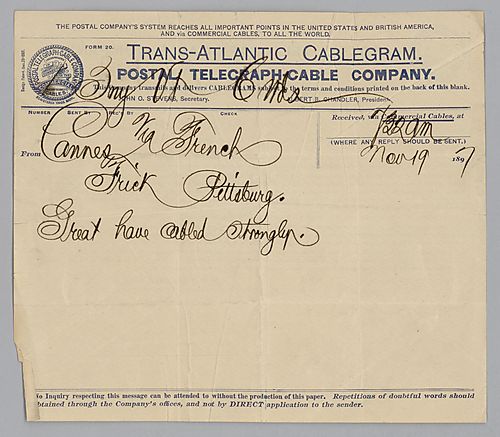 THE POSTAL COMPANY'S SYSTEM REACHES ALL IMPORTANT POINTS IN THE UNITED STATES AND BRITISH AMERICA,
AND via COMMERCIAL CABLES, TO ALL THE WORLD.
FORM 20.
TRANS-ATLANTIC CABLEGRAM.
POSTAL TELEGRAPH-CABLE COMPANY.
This Company transmits and delivers CABLEGRAMS subject to the terms and conditions printed on the back of this blank.
JOHN O. STEVENS, Secretary. ALBERT B. CHANDLER, President.
NUMBER SENT BY REC'D BY CHECK
Received, via Commercial Cables, at
(WHERE ANY REPLY SHOULD BE SENT.)
Nov 19 1897
Via French
From Cannes
Frick Pittsburg.
Great have cabled strongly.
No Inquiry respecting this message can be attended to without the production of this paper. Repetitions of doubtful words should
obtained through the Company's offices, and not by DIRECT application to the sender.